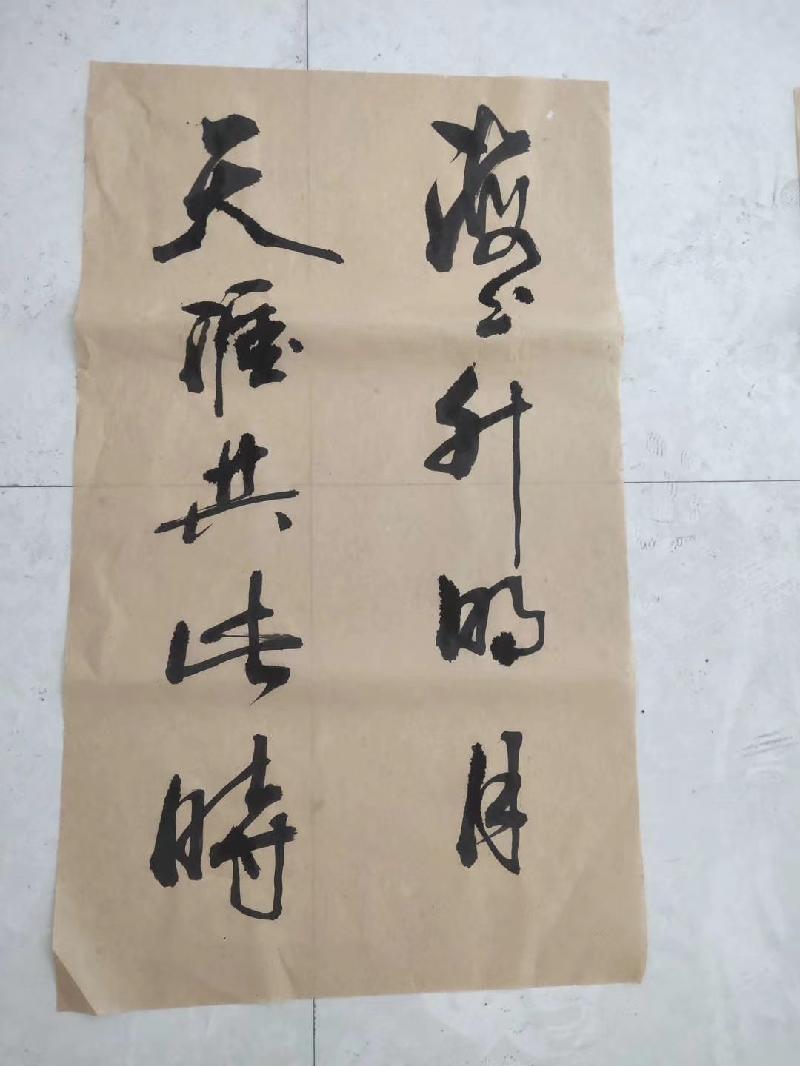 海上升明月
天涯共此時